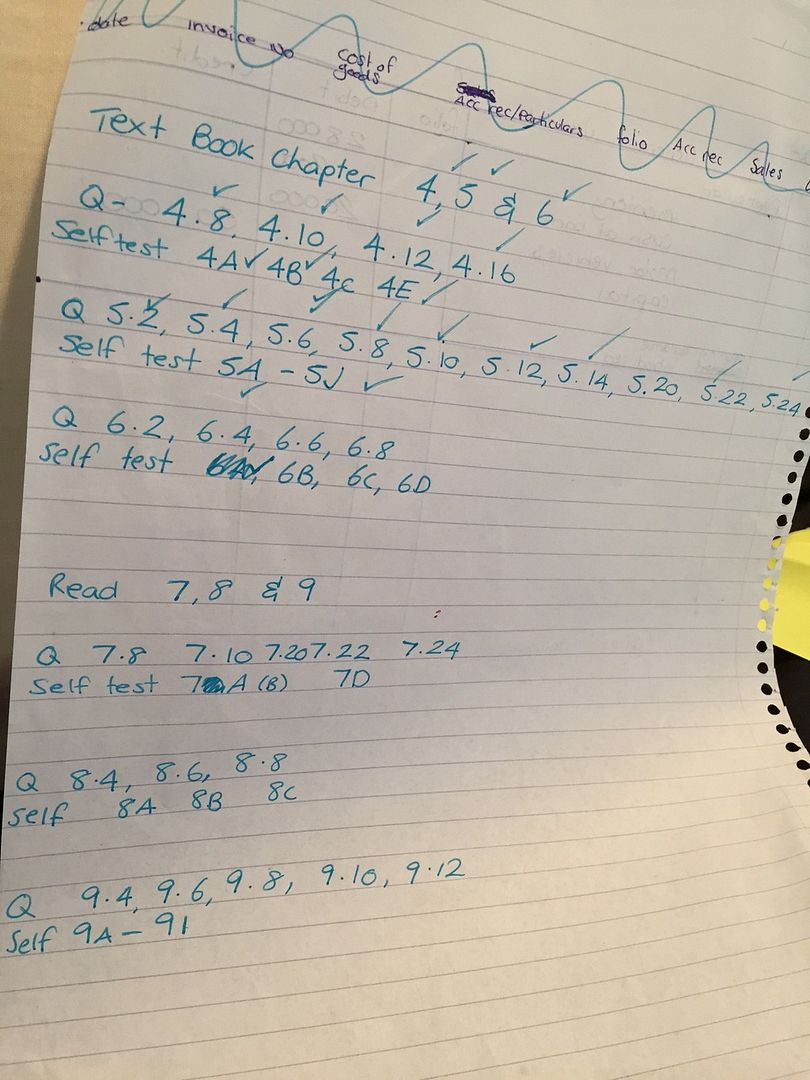 . date invoice No cost of goods Acc rec/particulars folio Acc rec Sales
Text Book Chapter 4, 5 & 6
Q- 4.8, 4.10, 4.12, 4.16
Self test 4A 4B 4C 4E
Q 5.2, 5.4, 5.6, 5.8, 5.10, 5.12, 5.14, 5.20, 5.22, 5.24
Self test 5A - 5J
Q 6.2, 6.4, 6.6, 6.8
Self test 6A, 6B, 6C, 6D
Read 7, 8 & 9
Q 7.8 7.10 7.20 7.22 7.24
Self test 7A (B) 7D
Q 8.4, 8.6, 8.8
Self 8A 8B 8C
Q 9.4, 9.6, 9.8, 9.10, 9.12
Self 9A - 9I